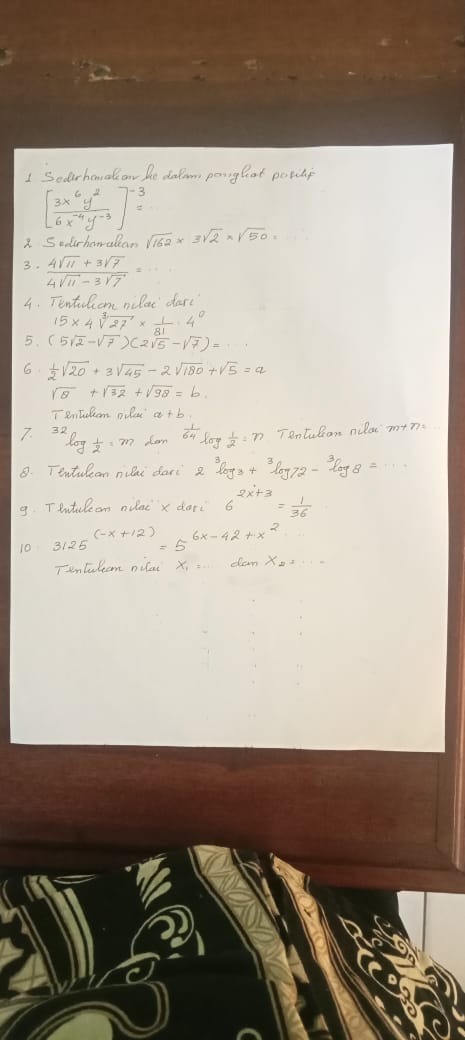 1 Sederhanakan ke dalam pangkat positif
[3x⁶y² / 6x⁻⁴y⁻³]⁻³ = ...
2. Sederhanakan √162 × 3√2 × √50 = ...
3. (4√11 + 3√7) / (4√11 - 3√7) = ...
4. Tentukan nilai dari
15 × 4 ∛27 × 1/81 . 4⁰
5. (5√2 - √7)(2√5 - √7) = ...
6. 1/2 √20 + 3√45 - 2√180 + √5 = a
√8 + √32 + √98 = b.
Tentukan nilai a + b.
7. ³²log 1/2 = m dan ^(1/64)log 1/2 = n Tentukan nilai m+n = ...
8. Tentukan nilai dari 2 ³log 3 + ³log 72 - ³log 8 = ...
9. Tentukan nilai x dari 6^(2x+3) = 1/36
10. 3125^(-x+12) = 5^(6x-42+x²) ...
Tentukan nilai x₁ = ... dan x₂ = ...